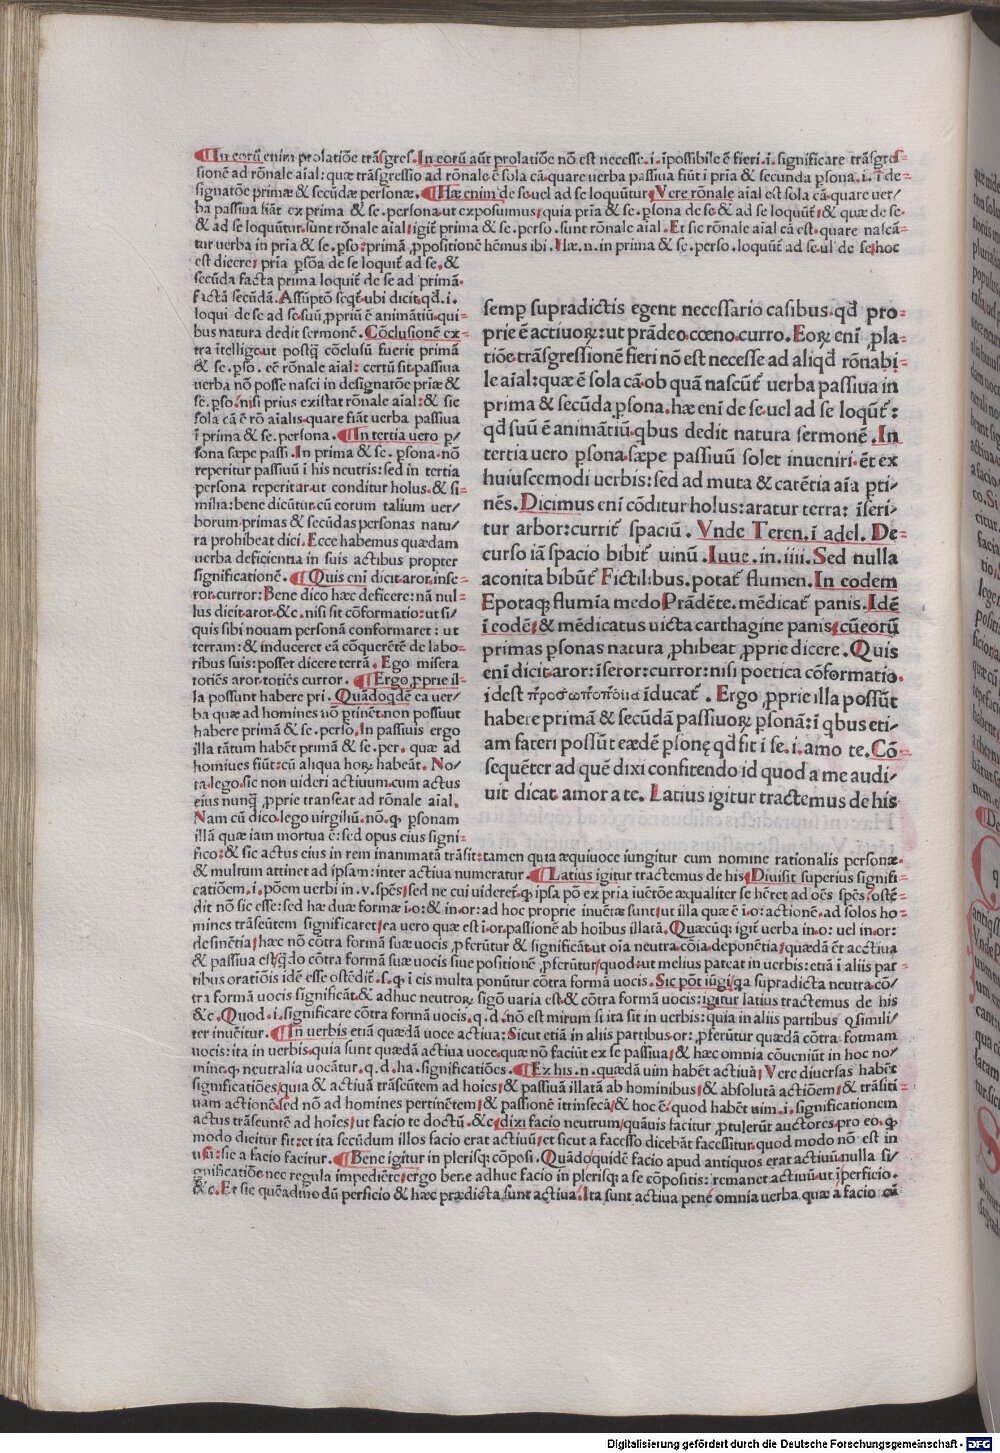 ¶In eorū enim prolatiōe trāsgres. In eorū aūt prolatiōe nō est necesse .i. īpossibile ē fieri .i. significare trāsgres-
sionē ad rōnale aīal: quæ trāsgressio ad rōnalē ē sola cā quare uerba passiua fiūt i pria & secunda psona .i. ī de-
signatōe primæ & secūdæ personæ. ¶Hæ enim de se uel ad se loquūtur Vere rōnale aīal est sola cā quare uer/
ba passiua fiāt ex prima & se. persona ut exposuimus/ quia pria & se. psona de se & ad se loquūt & quæ de se
& ad se loquūtur sunt rōnale aīal/ igit prima & se. perso. sunt rōnale aīal. Et sic rōnale aīal cā est quare nascā-
tur uerba in pria & se. pso: primā propositionē hēmus ibi. Hæ .n. in prima & se. perso. loquūt ad se ul de se/ hoc
est dicere/ pria psōa de se loquit ad se. &
secūda facta prima loquit de se ad primā
facta secūdā. Assūptō seqt ubi dicit qd .i.
loqui de se ad se suū pprium ē animātiū qui-
bus natura dedit sermonē. Cōclusionē ex-
tra ītellige ut postq conclusū fuerit primā
& se. pso. eē rōnale aīal: certū sit passiua
uerba nō posse nasci in designatōe priæ &
se. pso/ nisi prius existat rōnale aīal: & sic
sola cā ē rō aīalis quare fiāt uerba passiua
ī prima & se. persona. ¶In tertia uero p/
sona sæpe passi. In prima & se. psona nō
reperitur passiuū ī his neutris: sed in tertia
persona reperitar ut conditur holus & si-
milia: bene dicūtur cū eorum talium uer/
borum primas & secūdas personas natu/
ra prohibeat dici. Ecce habemus quædam
uerba deficientia in suis actibus propter
significationē. ¶Quis enī dicit aror inse-
ror curror: Bene dico hæc deficere: nā nul-
lus dicit aror &c. nisi sit cōformatio: ut si/
quis sibi nouam personā conformaret: ut
terram: & induceret eā cōquerētē de labo-
ribus suis: posset dicere terrā. Ego misera
totiēs aror totiēs curror. ¶Ergo pprie il-
la possunt habere pri. Quādoqdē ea uer/
ba quæ ad homines nō ptinēt non possuut
habere primā & se. perso. In passiuis ergo
illa tātum habēt primā & se. per. quæ ad
homiues fiūt: cū aliqua hoꝝ habeāt. No/
ta lego. sic non uideri actiuum cum actus
eius nunq pprie transeat ad rōnale aīal.
Nam cū dico lego uirgiliū. nō. q psonam
illā quæ iam mortua ē: sed opus eius signi-
semp supradictis egent necessario casibus. qd pro-
prie ē actiuoꝝ: ut prādeo cœno curro. Eoꝝ enī pla-
tiōe trāsgressionē fieri nō est necesse ad aliqd rōnabi-
le aīal: quæ ē sola cā ob quā nascūt uerba passiua in
prima & secūda psona. hæ enī de se uel ad se loqūt:
qd suū ē animātiū qbus dedit natura sermonē. In
tertia uero psona sæpe passiuū solet inueniri. ēt ex
huiuscemodi uerbis: sed ad muta & carētia aīa pti/
nēs. Dicimus enī cōditur holus: aratur terra: īseri/
tur arbor: currit spaciū. Vnde Teren. ī adel. De-
curso iā spacio bibit uinū. Iuue. in. iiii. Sed nulla
aconita bibūt Fictilibus. potat flumen. In eodem
Epotaqꝫ flumīa medo Prādēte. mēdicat panis. Idē
ī eodē/ & mēdicatus uicta carthagine panis/ cū eorū
primas psonas natura phibeat pprie dicere. Quis
enī dicit aror: iseror: curror: nisi poetica cōformatio.
idest προσωποποιια īducat. Ergo pprie illa possūt
habere primā & secūdā passiuoꝝ psonā: ī qbus eti/
am fateri possūt eædē psonę qd fit i se .i. amo te. Cō-
sequēter ad quē dixi confitendo id quod a me audi/
uit dicat amor a te. Latius igitur tractemus de his
fico: & sic actus eius in rem inanimatā trāsit: tamen quia æquiuoce iungitur cum nomine rationalis personæ.
& multum attinet ad ipsam: inter actiua numeratur. ¶Latius igitur tractemus de his/ Diuisit superius signifi-
catiōem .i. pōem uerbi in. v. spēs/ sed ne cui uideret q ipsa pō ex pria iuētōe æqualiter se hēret ad oēs spēs/ ostē-
dit nō sic esse: sed hæ duæ formæ ī. o: & in. or: ad hoc proprie inuētæ sunt/ ut illa quæ ē ī. o: actionē. ad solos ho-
mines trāseūtem significaret/ ea uero quæ est ī. or. passionē ab hoibus illatā. Quæcūqꝫ igit uerba in. o: uel in. or:
desinētia/ hæc nō cōtra formā suæ uocis pferūtur & significāt ut oīa neutra cōia deponētia/ quædā ēt acctiua
& passiua est/ qdo cōtra formā suæ uocis siue positionē pferūtur/ quod: ut melius pateat in uerbis: etiā ī aliis par-
tibus orationīs idē esse ostēdit .f. q ī eis multa ponūtur cōtra formā uocis. Sic pōt iūgi/ qa supradicta neutra cō-
tra formā uocis significāt. & adhuc neutroꝝ sigō uaria est & cōtra formā uocis: igitur latius tractemus de his
&c. Quod .i. significare cōtra formā uocis. q. d. nō est mirum si ita sit in uerbis: quia in aliis partibus q simili/
ter inuēitur. ¶In uerbis etiā quædā uoce actiua: Sicut etiā in aliis partibus or: pferūtur quædā cōtra fotmam
uocis: ita in uerbis. quia sunt quædā actiua uoce quæ nō faciūt ex se passiua/ & hæc omnia cōueniūt in hoc no/
mine. q neutralia uocātur. q. d. ha. significatiōes. ¶Ex his .n. quædā uim habēt actiuā/ Vere diuersas habēt
significatiōes/ quia & actiuā trāseūtem ad hoies/ & passiuā illatā ab hominibus/ & absolutā actiōem/ & trāsiti-
uam actionē sed nō ad homines pertinētem/ & passionē ītrinsecā/ & hoc ē/ quod habēt uim .i. significationem
actus trāseuntē ad hoīes/ ut facio te doctū. &c. dixi facio neutrum/ quāuis facitur ptulerūt auctores pro eo. q
modo dicitur fit: et ita secūdum illos facio erat actiuū/ et sicut a facesso dicebāt facessitur. quod modo nō est in
usū: sic a facio facitur. ¶Bene igitur in plerisqꝫ cōposi. Quādoquidē facio apud antiquos erat actiuū nulla si/
gnificatiōe nec regula impediēte/ ergo bene adhuc facio in plerisqꝫ a se cōpositis: remanet actiuū ut īperficio.
&c. Et sic quēadmodū perficio & hæc prædicta sunt actiua. Ita sunt actiua pene omnia uerba quæ a facio cū
Digitalisierung gefördert durch die Deutsche Forschungsgemeinschaft - DFG